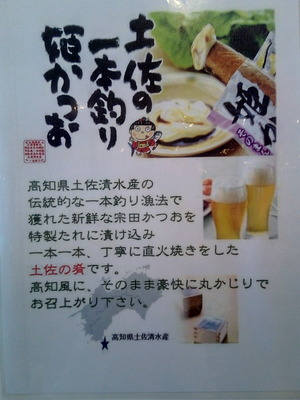 土佐の
一本釣り
姫かつお
高知県土佐清水産の
伝統的な一本釣り漁法で
獲れた新鮮な宗田かつおを
特製たれに漬け込み
一本一本、丁寧に直火焼きをした
土佐の肴です。
高知風に、そのまま豪快に丸かじりで
お召上がり下さい。
★高知県土佐清水産